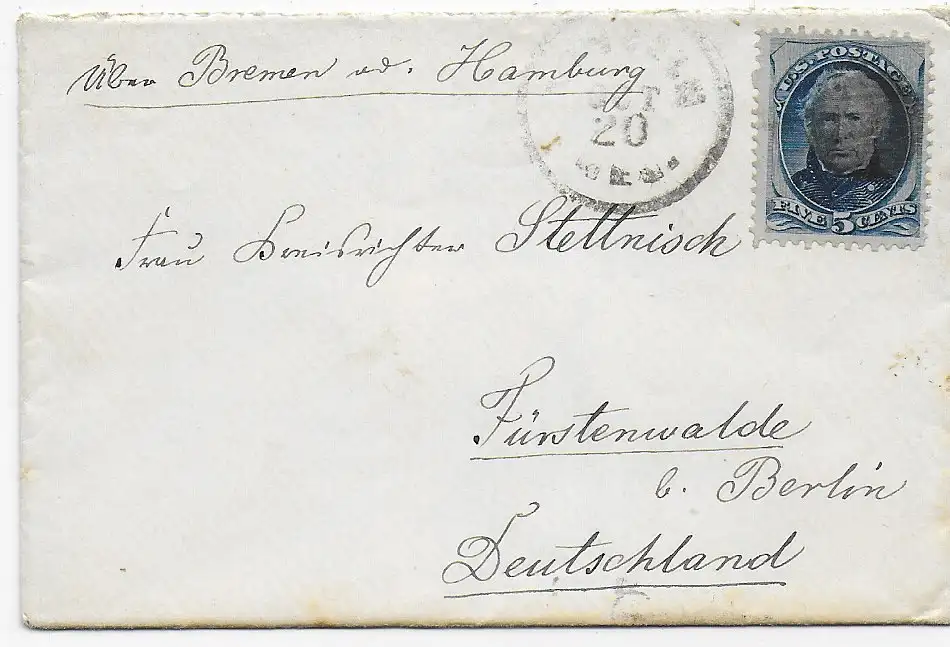 Über Bremen od. Hamburg
OCT
20
U.S. POSTAGE
FIVE 5 CENTS
Frau Kreisrichter Stettnisch
Fürstenwalde
b. Berlin
Deutschland